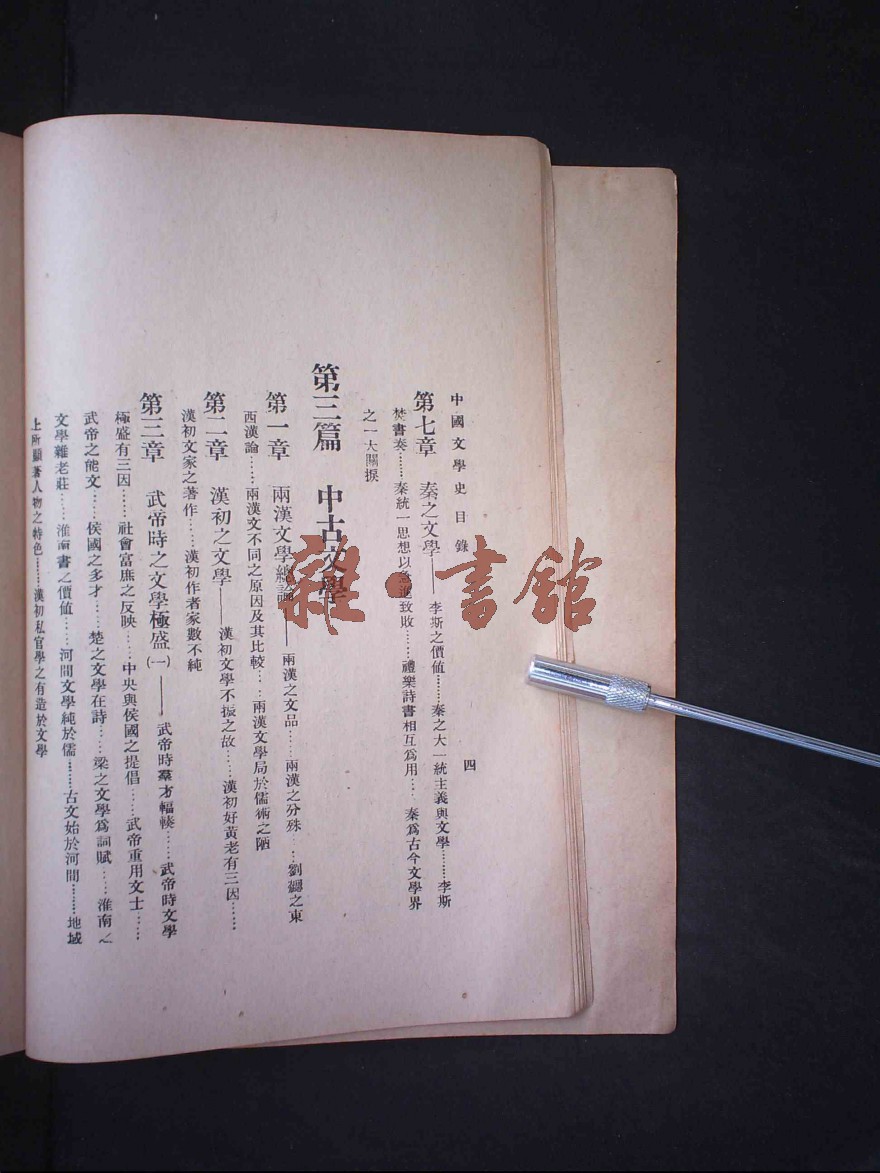 中國文學史目錄 四
第七章 秦之文學——李斯之價値……秦之大一統主義與文學……李斯
焚書奏……秦統一思想以急進致敗……禮樂詩書相互爲用……秦爲古今文學界
之一大關捩
第三篇 中古文學
第一章 兩漢文學總論——兩漢之文品……兩漢之分殊……劉勰之東
西漢論……兩漢文不同之原因及其比較……兩漢文學局於儒術之陋
第二章 漢初之文學——漢初文學不振之故……漢初好黃老有三因……
漢初文家之著作……漢初作者家數不純
第三章 武帝時之文學極盛(一)——武帝時羣才輻輳……武帝時文學
極盛有三因……社會富庶之反映……中央與侯國之提倡……武帝重用文士……
武帝之能文……侯國之多才……楚之文學在詩……梁之文學爲詞賦……淮南之
文學雜老莊……淮南書之價値……河間文學純於儒……古文始於河間……地域
上所顯著人物之特色……漢初私官學之有造於文學
雜·書館